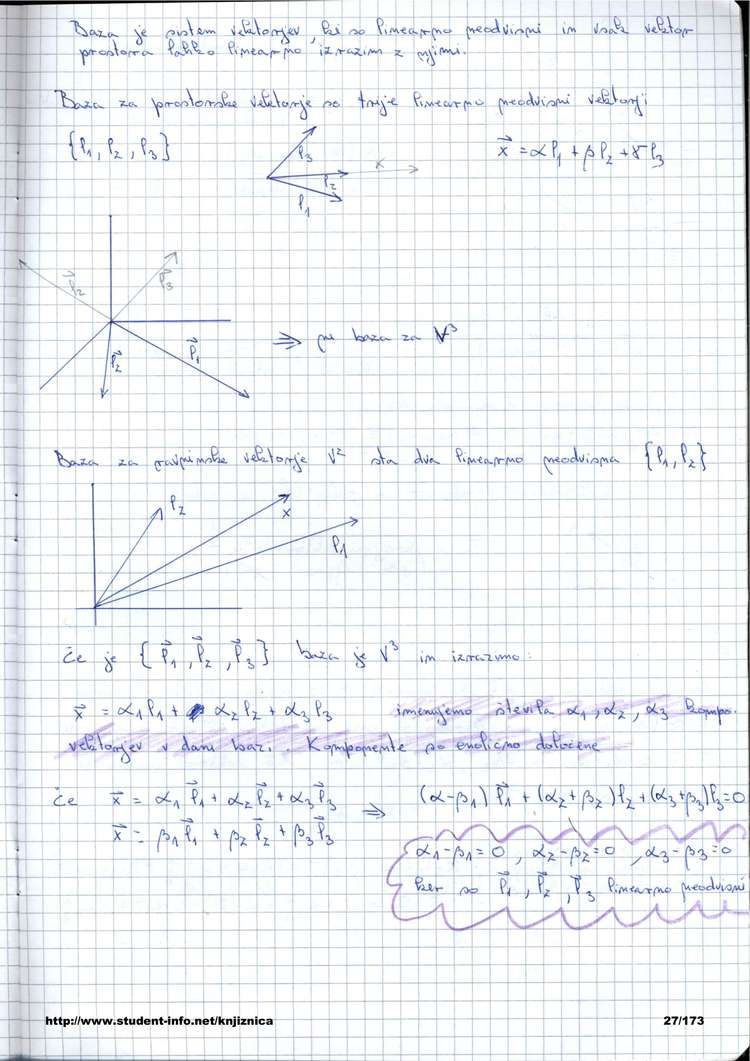 Baza je sistem vektorjev, ki so linearno neodvisni in vsak vektor
prostora lahko linearno izrazim z njimi.
Baza za prostorske vektorje so trije linearno neodvisni vektorji
{P₁, P₂, P₃}
P₃
x
P₂
P₁
x⃗ = αP₁ + βP₂ + γP₃
P⃗₂
P⃗₃
P⃗₁
P⃗₂
⇒ ni baza za V³
Baza za ravninske vektorje V² sta dva linearno neodvisna {P₁, P₂}
P₂
x
P₁
Če je {P⃗₁, P⃗₂, P⃗₃} baza je V³ in izrazimo:
x⃗ = α₁P₁ + α₂P₂ + α₃P₃ imenujemo števila α₁, α₂, α₃ kompo.
vektorjev v dani bazi. Komponente so enolično določene
Če x⃗ = α₁P⃗₁ + α₂P⃗₂ + α₃P⃗₃ ⇒ (α-β₁)P⃗₁ + (α₂+β₂)P₂ + (α₃+β₃)P₃=0
x⃗ = β₁P⃗₁ + β₂P⃗₂ + β₃P⃗₃
α₁-β₁=0, α₂-β₂=0, α₃-β₃=0
ker so P⃗₁, P⃗₂, P⃗₃ linearno neodvisni
http://www.student-info.net/knjiznica
27/173